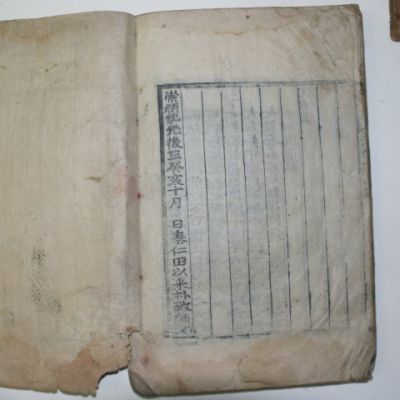 崇禎紀元後三癸亥十月 日泰仁田以采朴致維梓